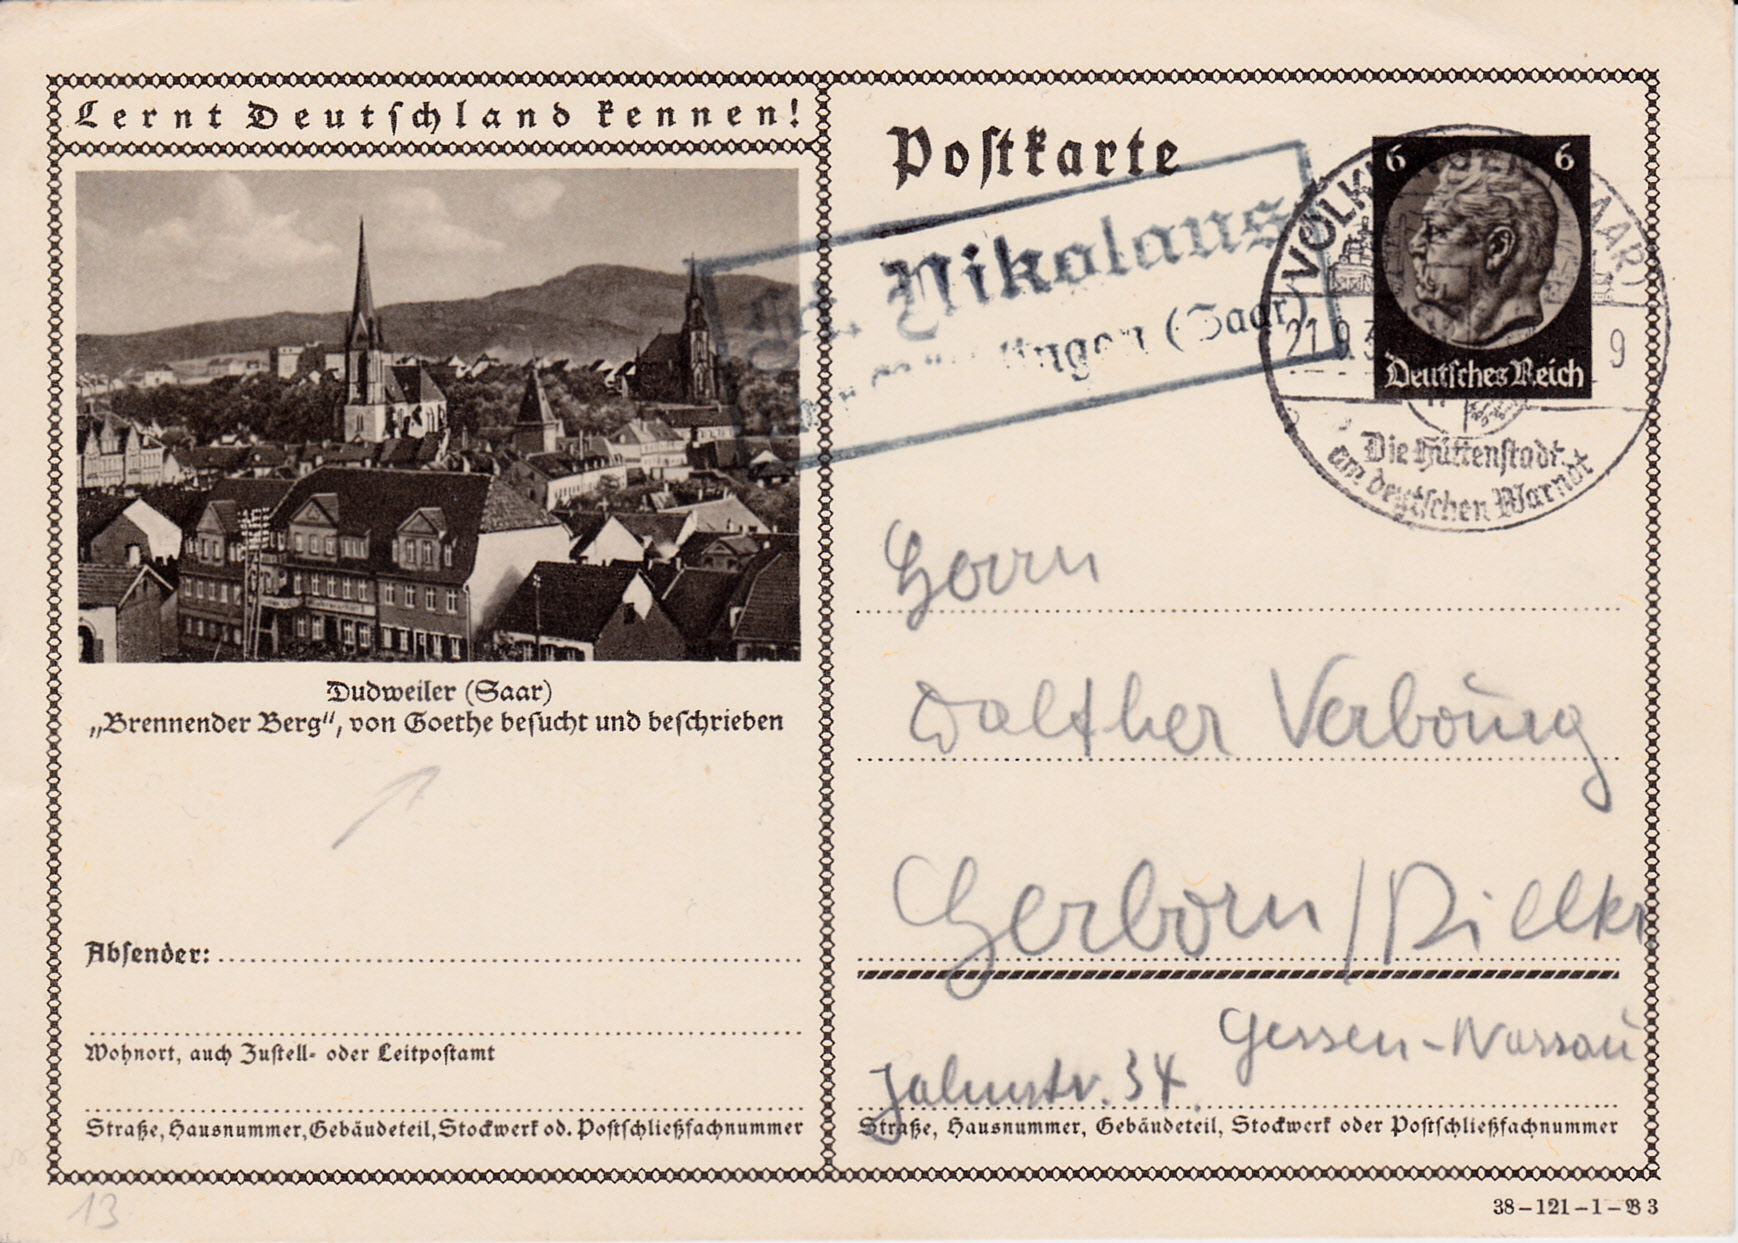 Lernt Deutschland kennen!
Dudweiler (Saar)
„Brennender Berg“, von Goethe besucht und beschrieben
Absender:
Wohnort, auch Zustell- oder Leitpostamt
Straße, Hausnummer, Gebäudeteil, Stockwerk od. Postschließfachnummer
13
Postkarte
St. Nikolaus
(Saar)
6 6
Deutsches Reich
VÖLKLINGEN (SAAR)
21.9.3 9
Die Hüttenstadt
am deutschen Warndt
Herrn
Walther Verbourg
Herborn / Dillkr
Hessen-Nassau
Jahnstr. 34.
Straße, Hausnummer, Gebäudeteil, Stockwerk oder Postschließfachnummer
38-121-1-B 3